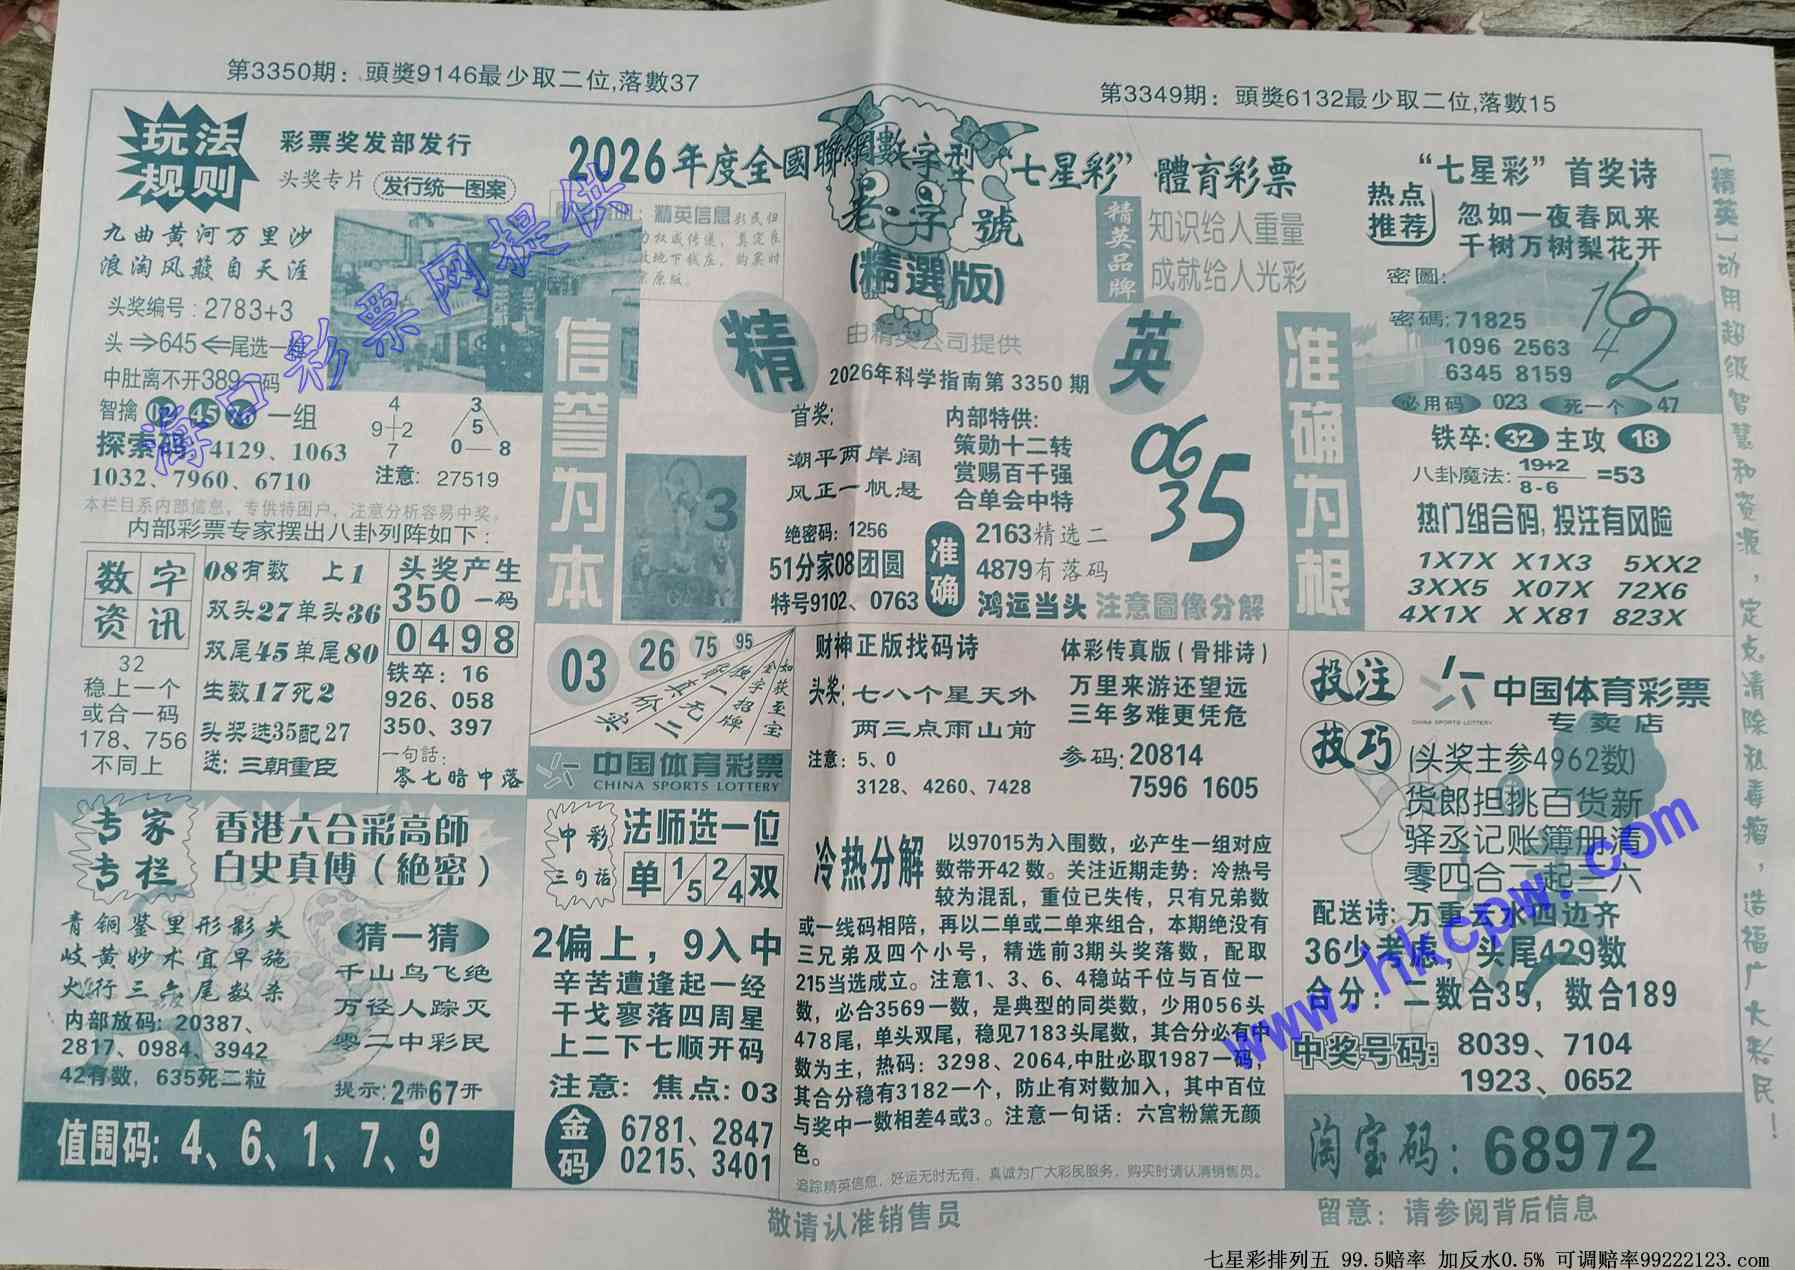 第3350期：頭獎9146最少取二位,落數37
第3349期：頭獎6132最少取二位,落數15
玩法
规则
彩票奖发部发行
头奖专片 发行统一图案
九曲黄河万里沙
浪淘风簸自天涯
头奖编号：2783+3
头⇒645⇐尾选一
中肚离不开389一码
智擒 45 一组
探索码 4129、1063
1032、7960、6710
4
9+2
7
3
5
0—8
注意：27519
本栏目系内部信息，专供特困户，注意分析容易中奖。
内部彩票专家摆出八卦列阵如下：
数字
资讯
32
稳上一个
或合一码
178、756
不同上
08有数 上1
双头27单头36
双尾45单尾80
生数17死2
头奖选35配27
送：三朝重臣
头奖产生
350一码
0498
铁卒：16
926、058
350、397
一句話：
零七暗中落
专家
专栏
香港六合彩高師
白史真傅（絶密）
青铜鉴里形影失
岐黄妙术宜早施
火行三六尾数杀
内部放码：20387、
2817、0984、3942
42有数，635死二粒
猜一猜
千山鸟飞绝
万径人踪灭
零二中彩民
提示:2带67开
值围码：4、6、1、7、9
2026年度全國聯網數字型“七星彩”體育彩票
老字號
(精選版)
由精英公司提供
：精英信息
精英品牌
知识给人重量
成就给人光彩
信誉为本
精 英
2026年科学指南第3350期
首奖:
潮平两岸阔
风正一帆悬
内部特供：
策勋十二转
赏赐百千强
合单会中特
06
35
3
绝密码：1256
51分家08团圆
特号9102、0763
准确
2163精选二
4879有落码
鸿运当头 注意圖像分解
准确为根
03 26 75 95
如获至宝
金字招牌
独一无二
货真价实
中国体育彩票
CHINA SPORTS LOTTERY
财神正版找码诗
头奖：七八个星天外
两三点雨山前
注意：5、0
3128、4260、7428
体彩传真版（骨排诗）
万里来游还望远
三年多难更凭危
参码：20814
7596 1605
中彩
三句话
法师选一位
单 1/5 2/4 双
2偏上，9入中
辛苦遭逢起一经
干戈寥落四周星
上二下七顺开码
注意：焦点：03
金码
6781、2847
0215、3401
冷热分解
以97015为入围数，必产生一组对应
数带开42数。关注近期走势：冷热号
较为混乱，重位已失传，只有兄弟数
或一线码相陪，再以二单或二单来组合，本期绝没有
三兄弟及四个小号，精选前3期头奖落数，配取
215当选成立。注意1、3、6、4稳站千位与百位一
数，必合3569一数，是典型的同类数，少用056头
478尾，单头双尾，稳见7183头尾数，其合分必有中
数为主，热码：3298、2064,中肚必取1987一码，
其合分稳有3182一个，防止有对数加入，其中百位
与奖中一数相差4或3。注意一句话：六宫粉黛无颜
色。
追踪精英信息，好运无时无有，真诚为广大彩民服务，购买时请认清销售员。
敬请认准销售员
热点
推荐
“七星彩”首奖诗
忽如一夜春风来
千树万树梨花开
密圖：
16
4 2
密碼：71825
1096 2563
6345 8159
必用码 023 死一个 47
铁卒：32 主攻 18
八卦魔法：19+2/8-6=53
热门组合码，投注有风险
1X7X X1X3 5XX2
3XX5 X07X 72X6
4X1X XX81 823X
投注
技巧
中国体育彩票
CHINA SPORTS LOTTERY
专卖店
(头奖主参4962数)
货郎担挑百货新
驿丞记账簿册清
零四合二起三六
配送诗：万重云水四边齐
36少考虑，头尾429数
合分：二数合35，数合189
中奖号码：8039、7104
1923、0652
淘宝码：68972
留意：请参阅背后信息
[精英]动用超级智慧和资源，定点清除私毒瘤，造福广大彩民！
海口彩票网提供
www.hkcpw.com
七星彩排列五 99.5赔率 加反水0.5% 可调赔率99222123.com